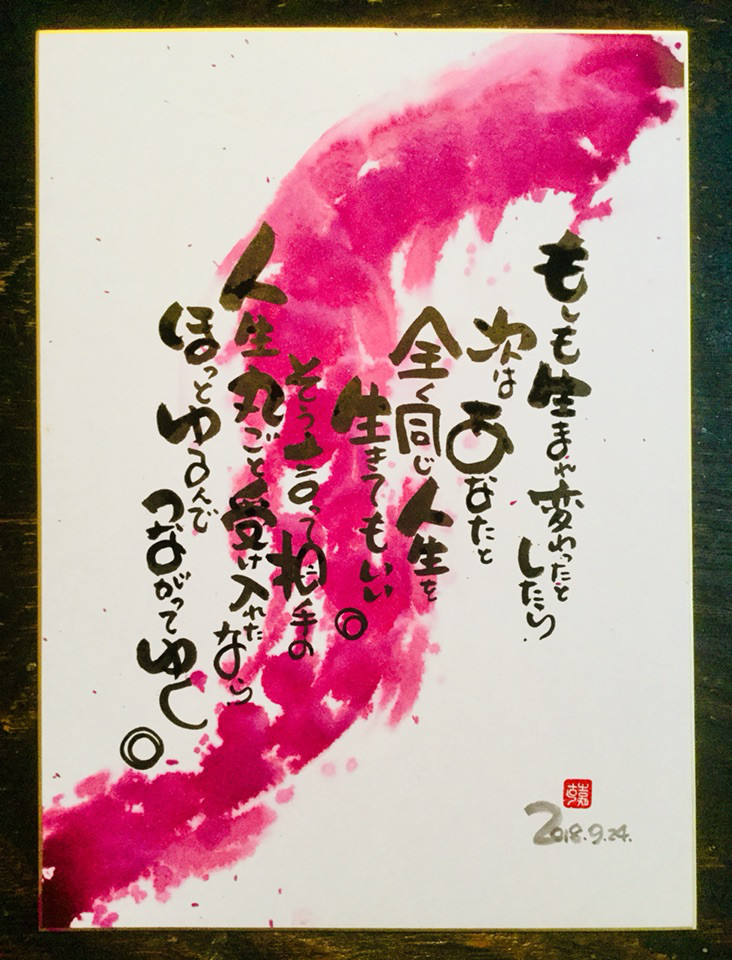 もしも生まれ変わったと
したら
次はあなたと
全く同じ人生を
生きてもいい。
そう言って相手の
人生丸ごと受け入れたなら
ほっとゆるんで
つながってゆく。
2018.9.24.